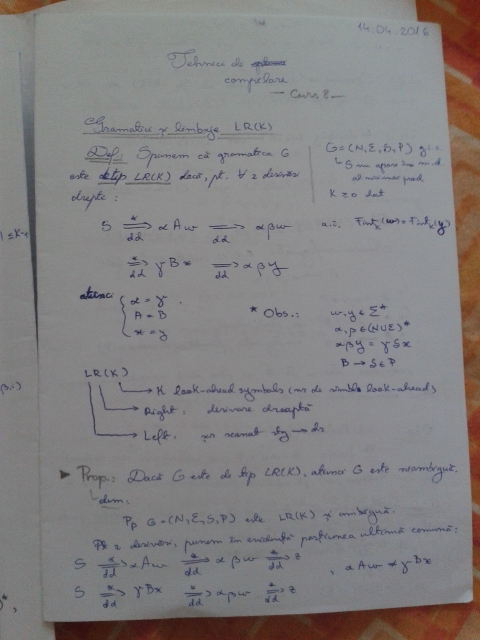 14.04.2016
Tehnici de
compilare
— Curs 8 —
Gramatici și limbaje LR(K)
Def: Spunem că gramatica G
este de tip LR(K) dacă, pt. ∀ 2 derivări
drepte:
G=(N,Σ,S,P) a.î.
S nu apare în m.d.
al niciunei prod.
K ≥ 0 dat
S *⇒dd αAw ⇒dd αβw a.î. Firstk(w)=Firstk(y)
*⇒dd γBx ⇒dd αβy
atunci { α = γ
A = B
x = y
* Obs.: w,y ∈ Σ*
α,β ∈ (N∪Σ)*
αβy = γδx
B → δ ∈ P
LR(K)
K look-ahead symbols (nr de simboluri look-ahead)
Right, derivare dreaptă
Left, șir scanat stg → dr
► Prop: Dacă G este de tip LR(K), atunci G este neambiguă.
dem:
Pp G=(N,Σ,S,P) este LR(K) și ambiguă.
Pt 2 derivări, punem în evidență porțiunea ultimă comună:
S *⇒dd αAw *⇒dd αβw *⇒dd z , αAw ≠ γBx
S *⇒dd γBx *⇒dd αβw *⇒dd z